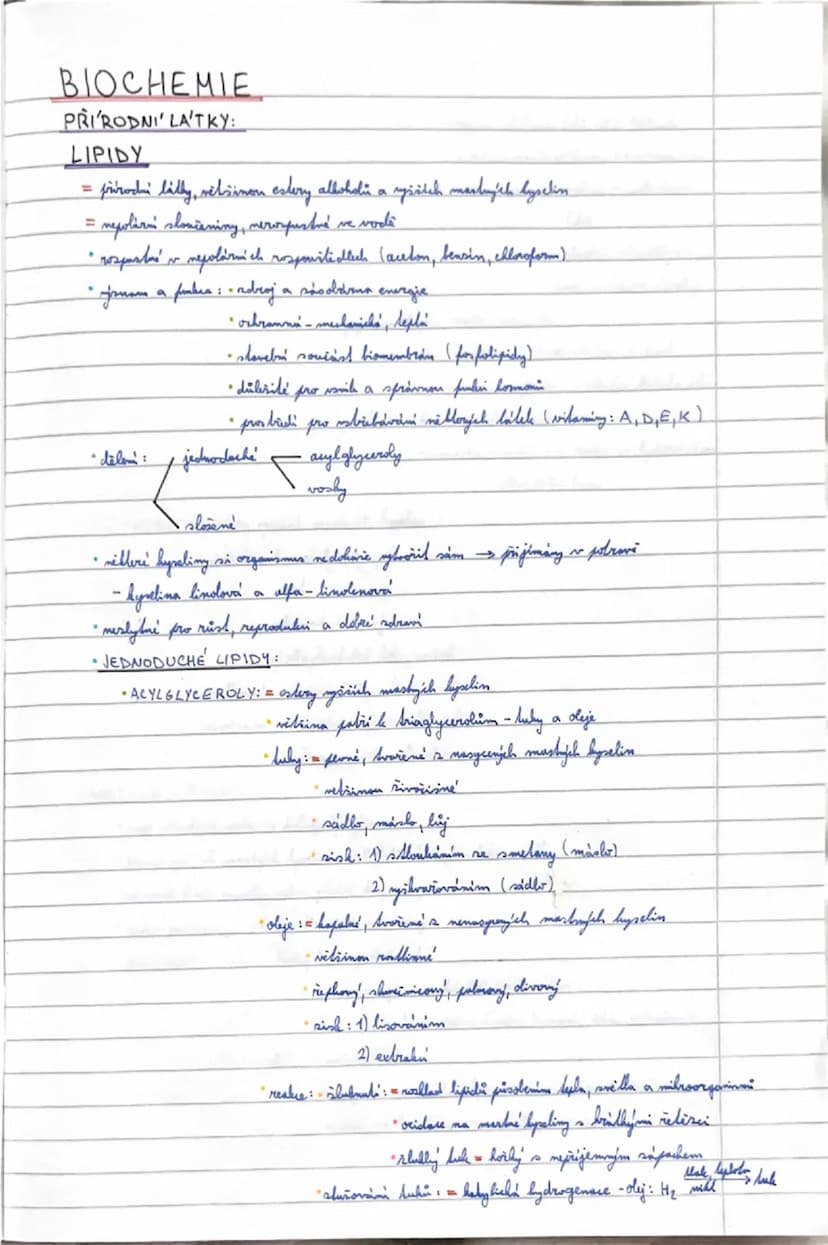 BIOCHEMIE
PŘÍRODNÍ LÁTKY:
LIPIDY
= přírodní látky, většinou estery alkoholů a vyšších mastných kyselin
= nepolární sloučeniny, nerozpustné ve vodě
• rozpustné v nepolárních rozpouštědlech (aceton, benzín, chloroform)
• význam a funkce: • zdroj a zásobárna energie
• ochranná - mechanická, teplá
• stavební součást biomembrán (fosfolipidy)
• důležité pro vznik a správnou funkci hormonů
• prostředí pro vstřebávání některých látek (vitamíny: A, D, E, K)
• dělení: jednoduché acylglyceroly
vosky
složené
• některé kyseliny si organismus nedokáže vytvořit sám → přijímány v potravě
- kyselina linolová a alfa-linolenová
• nezbytné pro růst, reprodukci a dobré zdraví
• JEDNODUCHÉ LIPIDY:
• ACYLGLYCEROLY: = estery vyšších mastných kyselin
• většina patří k triaglycerolům - tuky a oleje
• tuky: = pevné, tvořené z nasycených mastných kyselin
• většinou živočišné
• sádlo, máslo, lůj
• zisk: 1) stloukáním ze smetany (máslo)
2) vyškvařováním (sádlo)
• oleje: = kapalné, tvořené z nenasycených mastných kyselin
• většinou rostlinné
• řepkový, slunečnicový, palmový, olivový
• zisk: 1) lisováním
2) extrakcí
• reakce: • žluknutí: = rozklad lipidů působením tepla, světla a mikroorganismů
• oxidace na mastné kyseliny s krátkými řetězci
• žluklý tuk = hořký s nepříjemným zápachem
• ztužování tuků: = katalytická hydrogenace - olej: H₂ tlak, teplota nikl → tuk